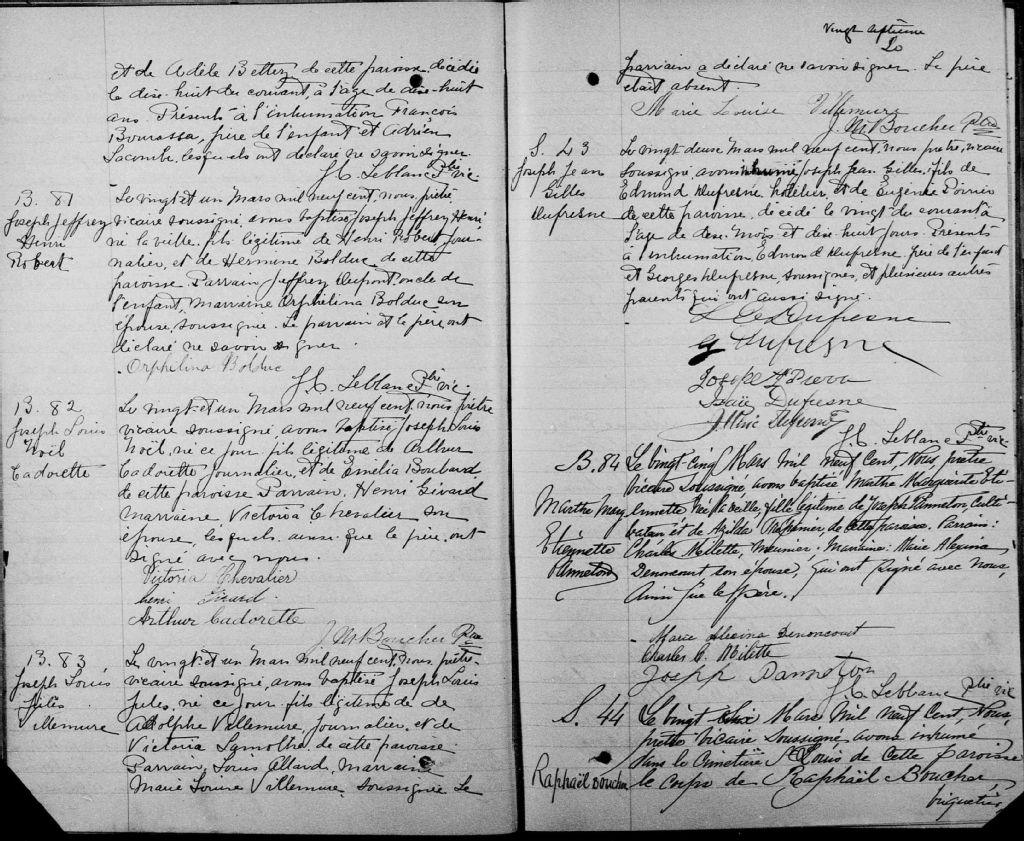 et de Adèle Bettez de cette paroisse, décédé
le dix-huit du courant, à l'âge de dix-huit
ans. Présents à l'inhumation François
Bourassa, père de l'enfant et Adrien
Lacombe, lesquels ont déclaré ne savoir signer.
J.C. Leblanc Ptre vic.
B. 81
Joseph Jeffrey
Henri
Robert
Le vingt et un Mars mil neuf cent, nous, prêtre,
vicaire soussigné, avons baptisé Joseph, Jeffrey, Henri
né la veille, fils légitime de Henri Robert, jour-
nalier, et de Hermine Bolduc de cette
paroisse. Parrain Jeffrey Dupont, oncle de
l'enfant, marraine Orphelina Bolduc son
épouse, soussignée. Le parrain et le père ont
déclaré ne savoir signer.
Orphelina Bolduc
J.C. Leblanc Ptre vic.
B. 82
Joseph Louis
Noël
Cadorette
Le vingt et un Mars mil neuf cent, nous prêtre
vicaire soussigné, avons baptisé Joseph Louis
Noël, né ce jour, fils légitime de Arthur
Cadorette journalier, et de Emélia
de cette paroisse Parrain, Henri Girard
marraine, Victoria Chevalier son
épouse, lesquels ainsi que le père, ont
signé avec nous.
Victoria Chevalier
henri Girard
Arthur Cadorette
J. Boucher Ptre
B. 83
Joseph Louis
Jules
Villemure
Le vingt et un Mars mil neuf cent, nous, prêtre
vicaire soussigné, avons baptisé Joseph Louis
Jules, né ce jour fils légitime de de
Adolphe Villemure, journalier, et de
Victoria Lamothe, de cette paroisse.
Parrain, Louis Allard, marraine
Marie Louise Villemure, soussignée Le
Vingt septième
parrain a déclaré ne savoir signer. Le père
était absent.
Marie Louise Villemure
J. Boucher Ptre
S. 43
Joseph Jean
Gilles
Dufresne
Le vingt deux Mars mil neuf cent, nous prêtre, vicaire
soussigné, avons inhumé Joseph Jean Gilles, fils de
Edmund Dufresne, hôtelier et de Eugénie Poirier
de cette paroisse, décédé le vingt du courant à
l'âge de deux mois et dix-huit jours. Présents
à l'inhumation, Edmond Dufresne, père de l'enfant
et Georges Dufresne, soussignés, et plusieurs autres
parents qui ont aussi signé.
Dufresne
G Dufresne
Joseph
Isaïe Dufresne
Dufresne
J.C. Leblanc Ptre vic.
B. 84
Marthe Marg
Etiennette
Panneton
Le vingt-cinq Mars mil neuf cent, Nous, prêtre
vicaire soussigné avons baptisé Marthe Marguerite Eti-
ennette née la veille, fille légitime de Joseph Panneton, culti-
vateur et de Azilda de cette paroisse. Parrain:
Charles Milette, meunier. Marraine: Marie Alexina
Denoncourt son épouse, qui ont signé avec nous,
ainsi que le père.
Marie Alexina Denoncourt
Charles C. Milette
Joseph Panneton
J.C. Leblanc Ptre vic
S. 44
Raphaël Boucher
Le vingt six Mars mil neuf cent, Nous
prêtre vicaire soussigné avons inhumé
dans le cimetière St Louis de cette paroisse
le corps de Raphaël Boucher
briquetier,